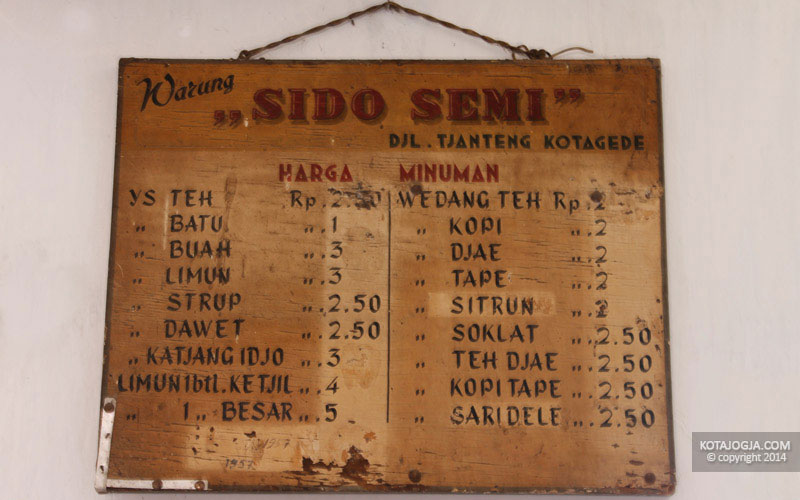 Warung
„SIDO SEMI”
DJL. TJANTENG KOTAGEDE
HARGA MINUMAN
YS TEH Rp. 2.50
„ BATU „. 1
„ BUAH „. 3
„ LIMUN „. 3
„ STRUP „. 2.50
„ DAWET „. 2.50
„ KATJANG IDJO „. 3
LIMUN 1btl. KETJIL „. 4
„ 1 „ BESAR „. 5
WEDANG TEH Rp. 2
„ KOPI „. 2
„ DJAE „. 2
„ TAPE „. 2
„ SITRUN „. 2
„ SOKLAT „. 2.50
„ TEH DJAE „. 2.50
„ KOPI TAPE „. 2.50
„ SARIDELE „. 2.50
1957
1957
KOTAJOGJA.COM
© copyright 2014